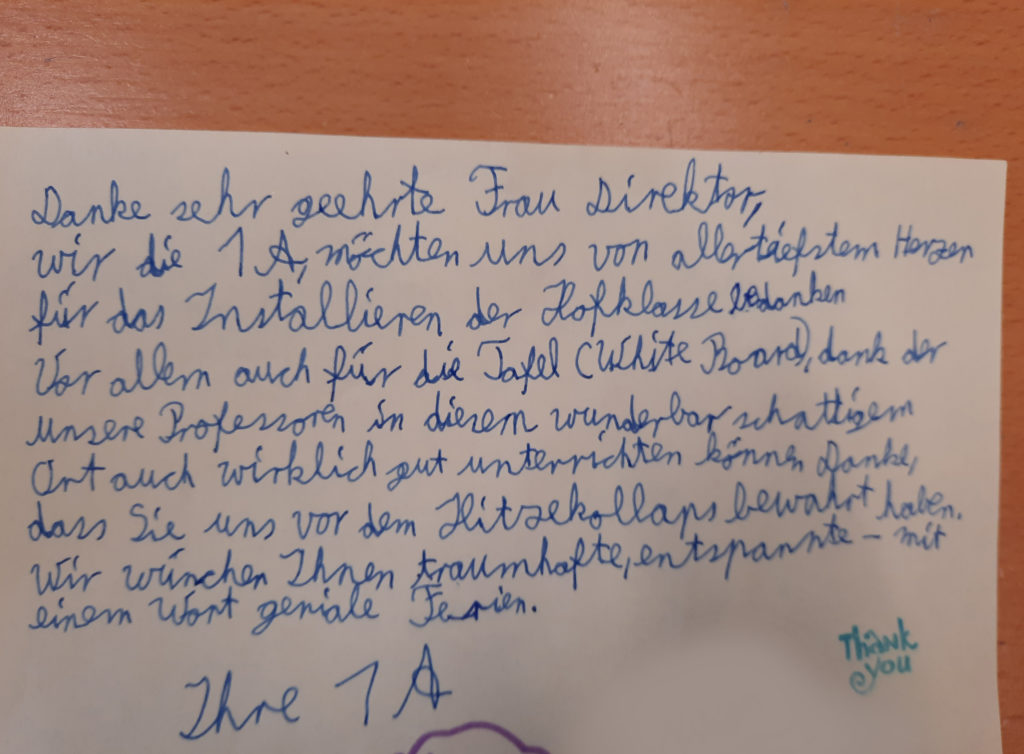 Danke sehr geehrte Frau Direktor,
wir die 1A, möchten uns von allertiefstem Herzen
für das Installieren der Hofklasse bedanken
Vor allem auch für die Tafel (White Board), dank der
unsere Professoren in diesem wunderbar schattigem
Ort auch wirklich gut unterrichten können Danke,
dass Sie uns vor dem Hitzekollaps bewahrt haben.
Wir wünchen Ihnen traumhafte, entspannte – mit
einem Wort geniale Ferien.
Thank
you
Ihre 1A